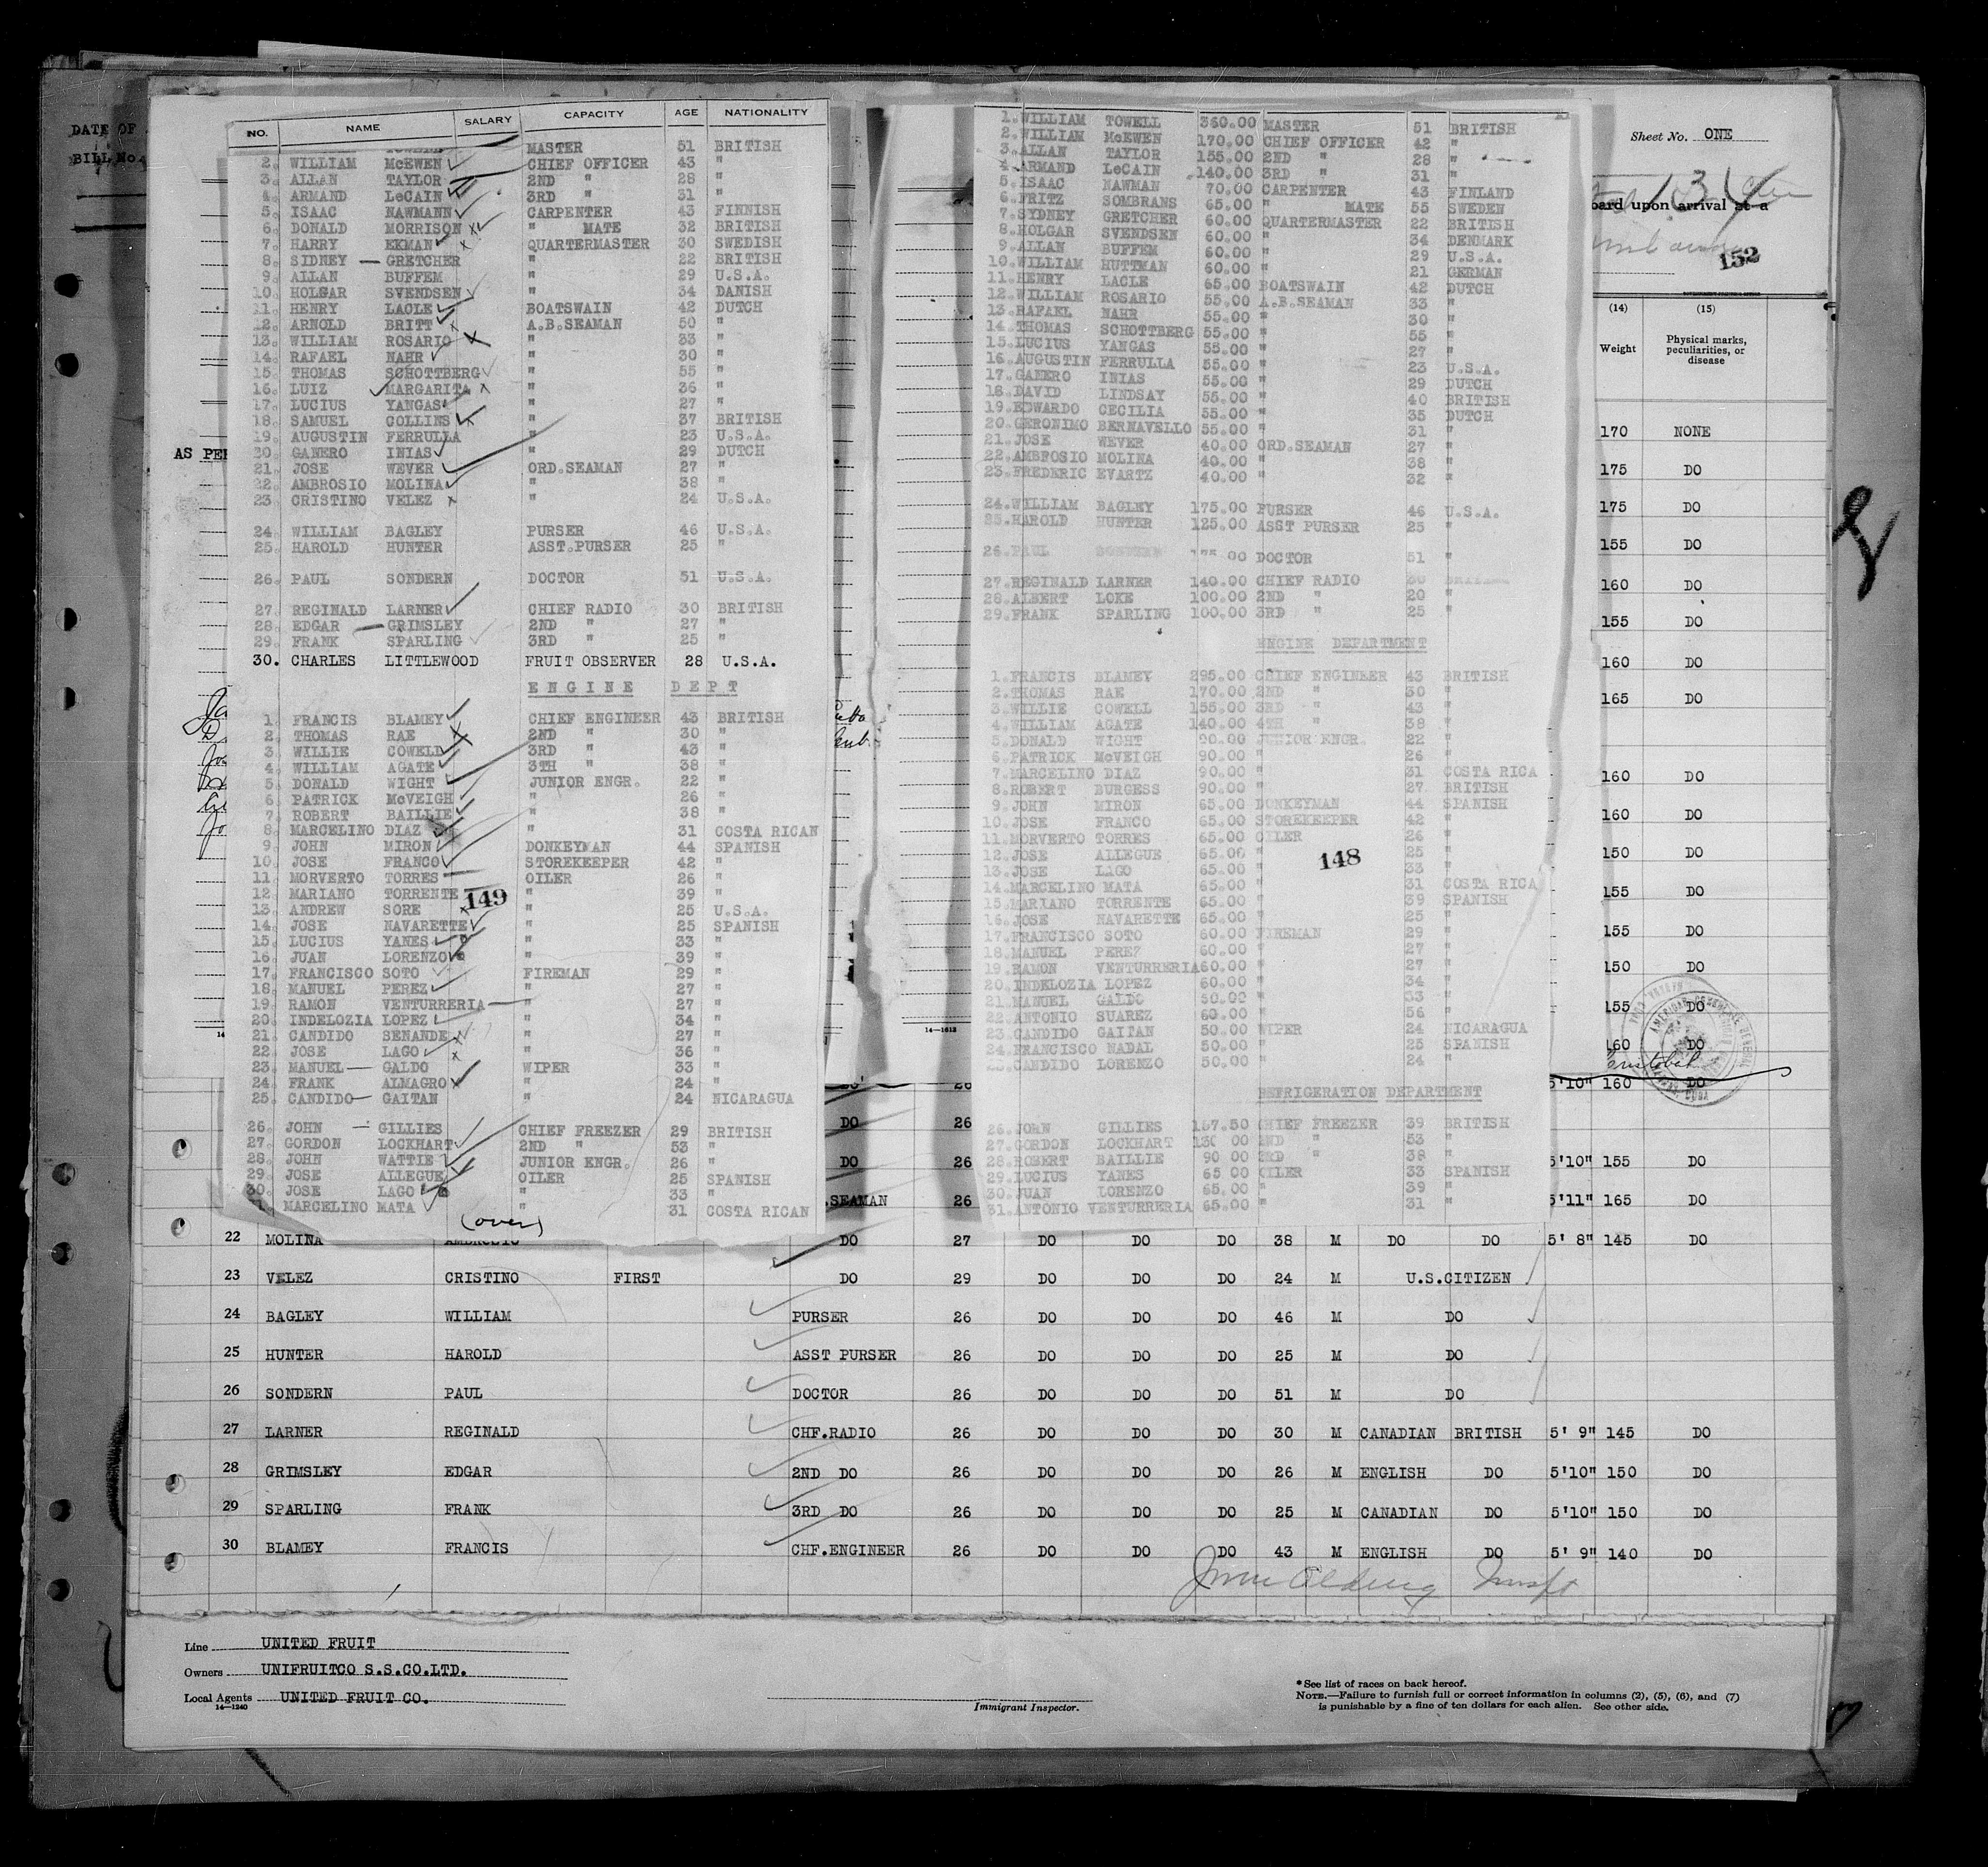 DATE OF
BILL No.
NO. NAME SALARY CAPACITY AGE NATIONALITY
MASTER 51 BRITISH
2. WILLIAM McEWEN CHIEF OFFICER 43 "
3. ALLAN TAYLOR 2ND " 28 "
4. ARMAND LeCAIN 3RD " 31 "
5. ISAAC NAWMANN CARPENTER 43 FINNISH
6. DONALD MORRISON " MATE 32 BRITISH
7. HARRY EKMAN QUARTERMASTER 30 SWEDISH
8. SIDNEY GRETCHER " 22 BRITISH
9. ALLAN BUFFEM " 29 U.S.A.
10. HOLGAR SVENDSEN " 34 DANISH
11. HENRY LACLE BOATSWAIN 42 DUTCH
12. ARNOLD BRITT A.B.SEAMAN 50 "
13. WILLIAM ROSARIO " 33 "
14. RAFAEL NAHR " 30 "
15. THOMAS SCHOTTBERG " 55 "
16. LUIZ MARGARITA " 36 "
17. LUCIUS YANGAS " 27 "
18. SAMUEL COLLINS " 37 BRITISH
19. AUGUSTIN FERRULLA " 23 U.S.A.
20. GANERO INIAS " 29 DUTCH
21. JOSE WEVER ORD.SEAMAN 27 "
22. AMBROSIO MOLINA " 38 "
23. CRISTINO VELEZ " 24 U.S.A.
24. WILLIAM BAGLEY PURSER 46 U.S.A.
25. HAROLD HUNTER ASST.PURSER 25 "
26. PAUL SONDERN DOCTOR 51 U.S.A.
27. REGINALD LARNER CHIEF RADIO 30 BRITISH
28. EDGAR GRIMSLEY 2ND " 27 "
29. FRANK SPARLING 3RD " 25 "
30. CHARLES LITTLEWOOD FRUIT OBSERVER 28 U.S.A.
ENGINE DEPT
1. FRANCIS BLAMEY CHIEF ENGINEER 43 BRITISH
2. THOMAS RAE 2ND " 30 "
3. WILLIE COWELL 3RD " 43 "
4. WILLIAM AGATE 3TH " 38 "
5. DONALD WIGHT JUNIOR ENGR. 22 "
6. PATRICK McVEIGH " 26 "
7. ROBERT BAILLIE " 38 "
8. MARCELINO DIAZ " 31 COSTA RICAN
9. JOHN MIRON DONKEYMAN 44 SPANISH
10. JOSE FRANCO STOREKEEPER 42 "
11. MORVERTO TORRES OILER 26 "
12. MARIANO TORRENTE " 39 "
149
13. ANDREW SORE " 25 U.S.A.
14. JOSE NAVARETTE " 25 SPANISH
15. LUCIUS YANES " 33 "
16. JUAN LORENZO " 39 "
17. FRANCISCO SOTO FIREMAN 29 "
18. MANUEL PEREZ " 27 "
19. RAMON VENTURRERIA " 27 "
20. INDELOZIA LOPEZ " 34 "
21. CANDIDO SENANDE " 27 "
22. JOSE LAGO " 36 "
23. MANUEL GALDO WIPER 33 "
24. FRANK ALMAGRO " 24 "
25. CANDIDO GAITAN " 24 NICARAGUA
26. JOHN GILLIES CHIEF FREEZER 29 BRITISH
27. GORDON LOCKHART 2ND " 53 "
28. JOHN WATTIE JUNIOR ENGR. 26 "
29. JOSE ALLEGUE OILER 25 SPANISH
30. JOSE LAGO " 33 "
MARCELINO MATA " 31 COSTA RICAN
(over)
1. WILLIAM TOWELL 350.00 MASTER 51 BRITISH
2. WILLIAM McEWEN 170.00 CHIEF OFFICER 42 "
3. ALLAN TAYLOR 155.00 2ND " 28 "
4. ARMAND LeCAIN 140.00 3RD " 31 "
5. ISAAC NAWMAN 70.00 CARPENTER 43 FINLAND
6. FRITZ SOMBRANS 65.00 " MATE 55 SWEDEN
7. SYDNEY GRETCHER 60.00 QUARTERMASTER 22 BRITISH
8. HOLGAR SVENDSEN 60.00 " 34 DENMARK
9. ALLAN BUFFEM 60.00 " 29 U.S.A.
10. WILLIAM HUTTMAN 60.00 " 21 GERMAN
11. HENRY LACLE 65.00 BOATSWAIN 42 DUTCH
12. WILLIAM ROSARIO 55.00 A.B.SEAMAN 33 "
13. RAFAEL NAHR 55.00 " 30 "
14. THOMAS SCHOTTBERG 55.00 " 55 "
15. LUCIUS YANGAS 55.00 " 27 "
16. AUGUSTIN FERRULLA 55.00 " 23 U.S.A.
17. GANERO INIAS 55.00 " 29 DUTCH
18. DAVID LINDSAY 55.00 " 40 BRITISH
19. EDWARDO CECILIA 55.00 " 35 DUTCH
20. GERONIMO BERNAVELLO 55.00 " 31 "
21. JOSE WEVER 40.00 ORD.SEAMAN 27 "
22. AMBROSIO MOLINA 40.00 " 38 "
23. FREDERIC EVARTZ 40.00 " 32 "
24. WILLIAM BAGLEY 175.00 PURSER 46 U.S.A.
25. HAROLD HUNTER 125.00 ASST PURSER 25 "
26. PAUL DOCTOR 51 "
27. REGINALD LARNER 140.00 CHIEF RADIO
28. ALBERT LOKE 100.00 2ND " 20 "
29. FRANK SPARLING 100.00 3RD " 25 "
ENGINE DEPARTMENT
1. FRANCIS BLAMEY 295.00 CHIEF ENGINEER 43 BRITISH
2. THOMAS RAE 170.00 2ND " 30 "
3. WILLIE COWELL 155.00 3RD " 43 "
4. WILLIAM AGATE 140.00 4TH " 38 "
5. DONALD WIGHT 90.00 JUNIOR ENGR. 22 "
6. PATRICK McVEIGH 90.00 " 26 "
7. MARCELINO DIAZ 90.00 " 31 COSTA RICA
8. ROBERT BURGESS 90.00 " 27 BRITISH
9. JOHN MIRON 65.00 DONKEYMAN 44 SPANISH
10. JOSE FRANCO 65.00 STOREKEEPER 42 "
11. MORVERTO TORRES 65.00 OILER 26 "
12. JOSE ALLEGUE 65.00 " 25 "
148
13. JOSE LAGO 65.00 " 33 "
14. MARCELINO MATA 65.00 " 31 COSTA RICA
15. MARIANO TORRENTE 65.00 " 39 SPANISH
16. JOSE NAVARETTE 65.00 " 25 "
17. FRANCISCO SOTO 60.00 FIREMAN 29 "
18. MANUEL PEREZ 60.00 " 27 "
19. RAMON VENTURRERIA 60.00 " 27 "
20. INDELOZIA LOPEZ 60.00 " 34 "
21. MANUEL GALDO 50.00 " 33 "
22. ANTONIO SUAREZ 60.00 " 56 "
23. CANDIDO GAITAN 50.00 WIPER 24 NICARAGUA
24. FRANCISCO NADAL 50.00 " 25 SPANISH
CANDIDO LORENZO 50.00 " 24 "
REFRIGERATION DEPARTMENT
26. JOHN GILLIES 157.50 CHIEF FREEZER 39 BRITISH
27. GORDON LOCKHART 130 00 2ND " 53 "
28. ROBERT BAILLIE 90 00 3RD " 38 "
29. LUCIUS YANES 65 00 OILER 33 SPANISH
30. JUAN LORENZO 65.00 " 39 "
31. ANTONIO VENTURRERIA 65.00 " 31 "
Sheet No. ONE
board upon arrival at a
152
(14) (15)
Weight Physical marks, peculiarities, or disease
AS PER
170 NONE
175 DO
175 DO
155 DO
160 DO
155 DO
160 DO
165 DO
160 DO
160 DO
150 DO
155 DO
155 DO
150 DO
155 DO
160 DO
Cristobal
AMERICAN CONSULATE GENERAL
CUBA
14-1613
5'10" 160 DO
DO 26
DO 26 5'10" 155 DO
SEAMAN 26 5'11" 165 DO
22 MOLINA AMBROSIO DO 27 DO DO DO 38 M DO DO 5' 8" 145 DO
23 VELEZ CRISTINO FIRST DO 29 DO DO DO 24 M U.S.CITIZEN
24 BAGLEY WILLIAM PURSER 26 DO DO DO 46 M DO
25 HUNTER HAROLD ASST PURSER 26 DO DO DO 25 M DO
26 SONDERN PAUL DOCTOR 26 DO DO DO 51 M DO
27 LARNER REGINALD CHF.RADIO 26 DO DO DO 30 M CANADIAN BRITISH 5' 9" 145 DO
28 GRIMSLEY EDGAR 2ND DO 26 DO DO DO 26 M ENGLISH DO 5'10" 150 DO
29 SPARLING FRANK 3RD DO 26 DO DO DO 25 M CANADIAN DO 5'10" 150 DO
30 BLAMEY FRANCIS CHF.ENGINEER 26 DO DO DO 43 M ENGLISH DO 5' 9" 140 DO
Line UNITED FRUIT
Owners UNIFRUITCO S.S.CO.LTD.
Local Agents UNITED FRUIT CO.
14-1240
Immigrant Inspector.
*See list of races on back hereof.
NOTE.—Failure to furnish full or correct information in columns (2), (5), (6), and (7)
is punishable by a fine of ten dollars for each alien. See other side.